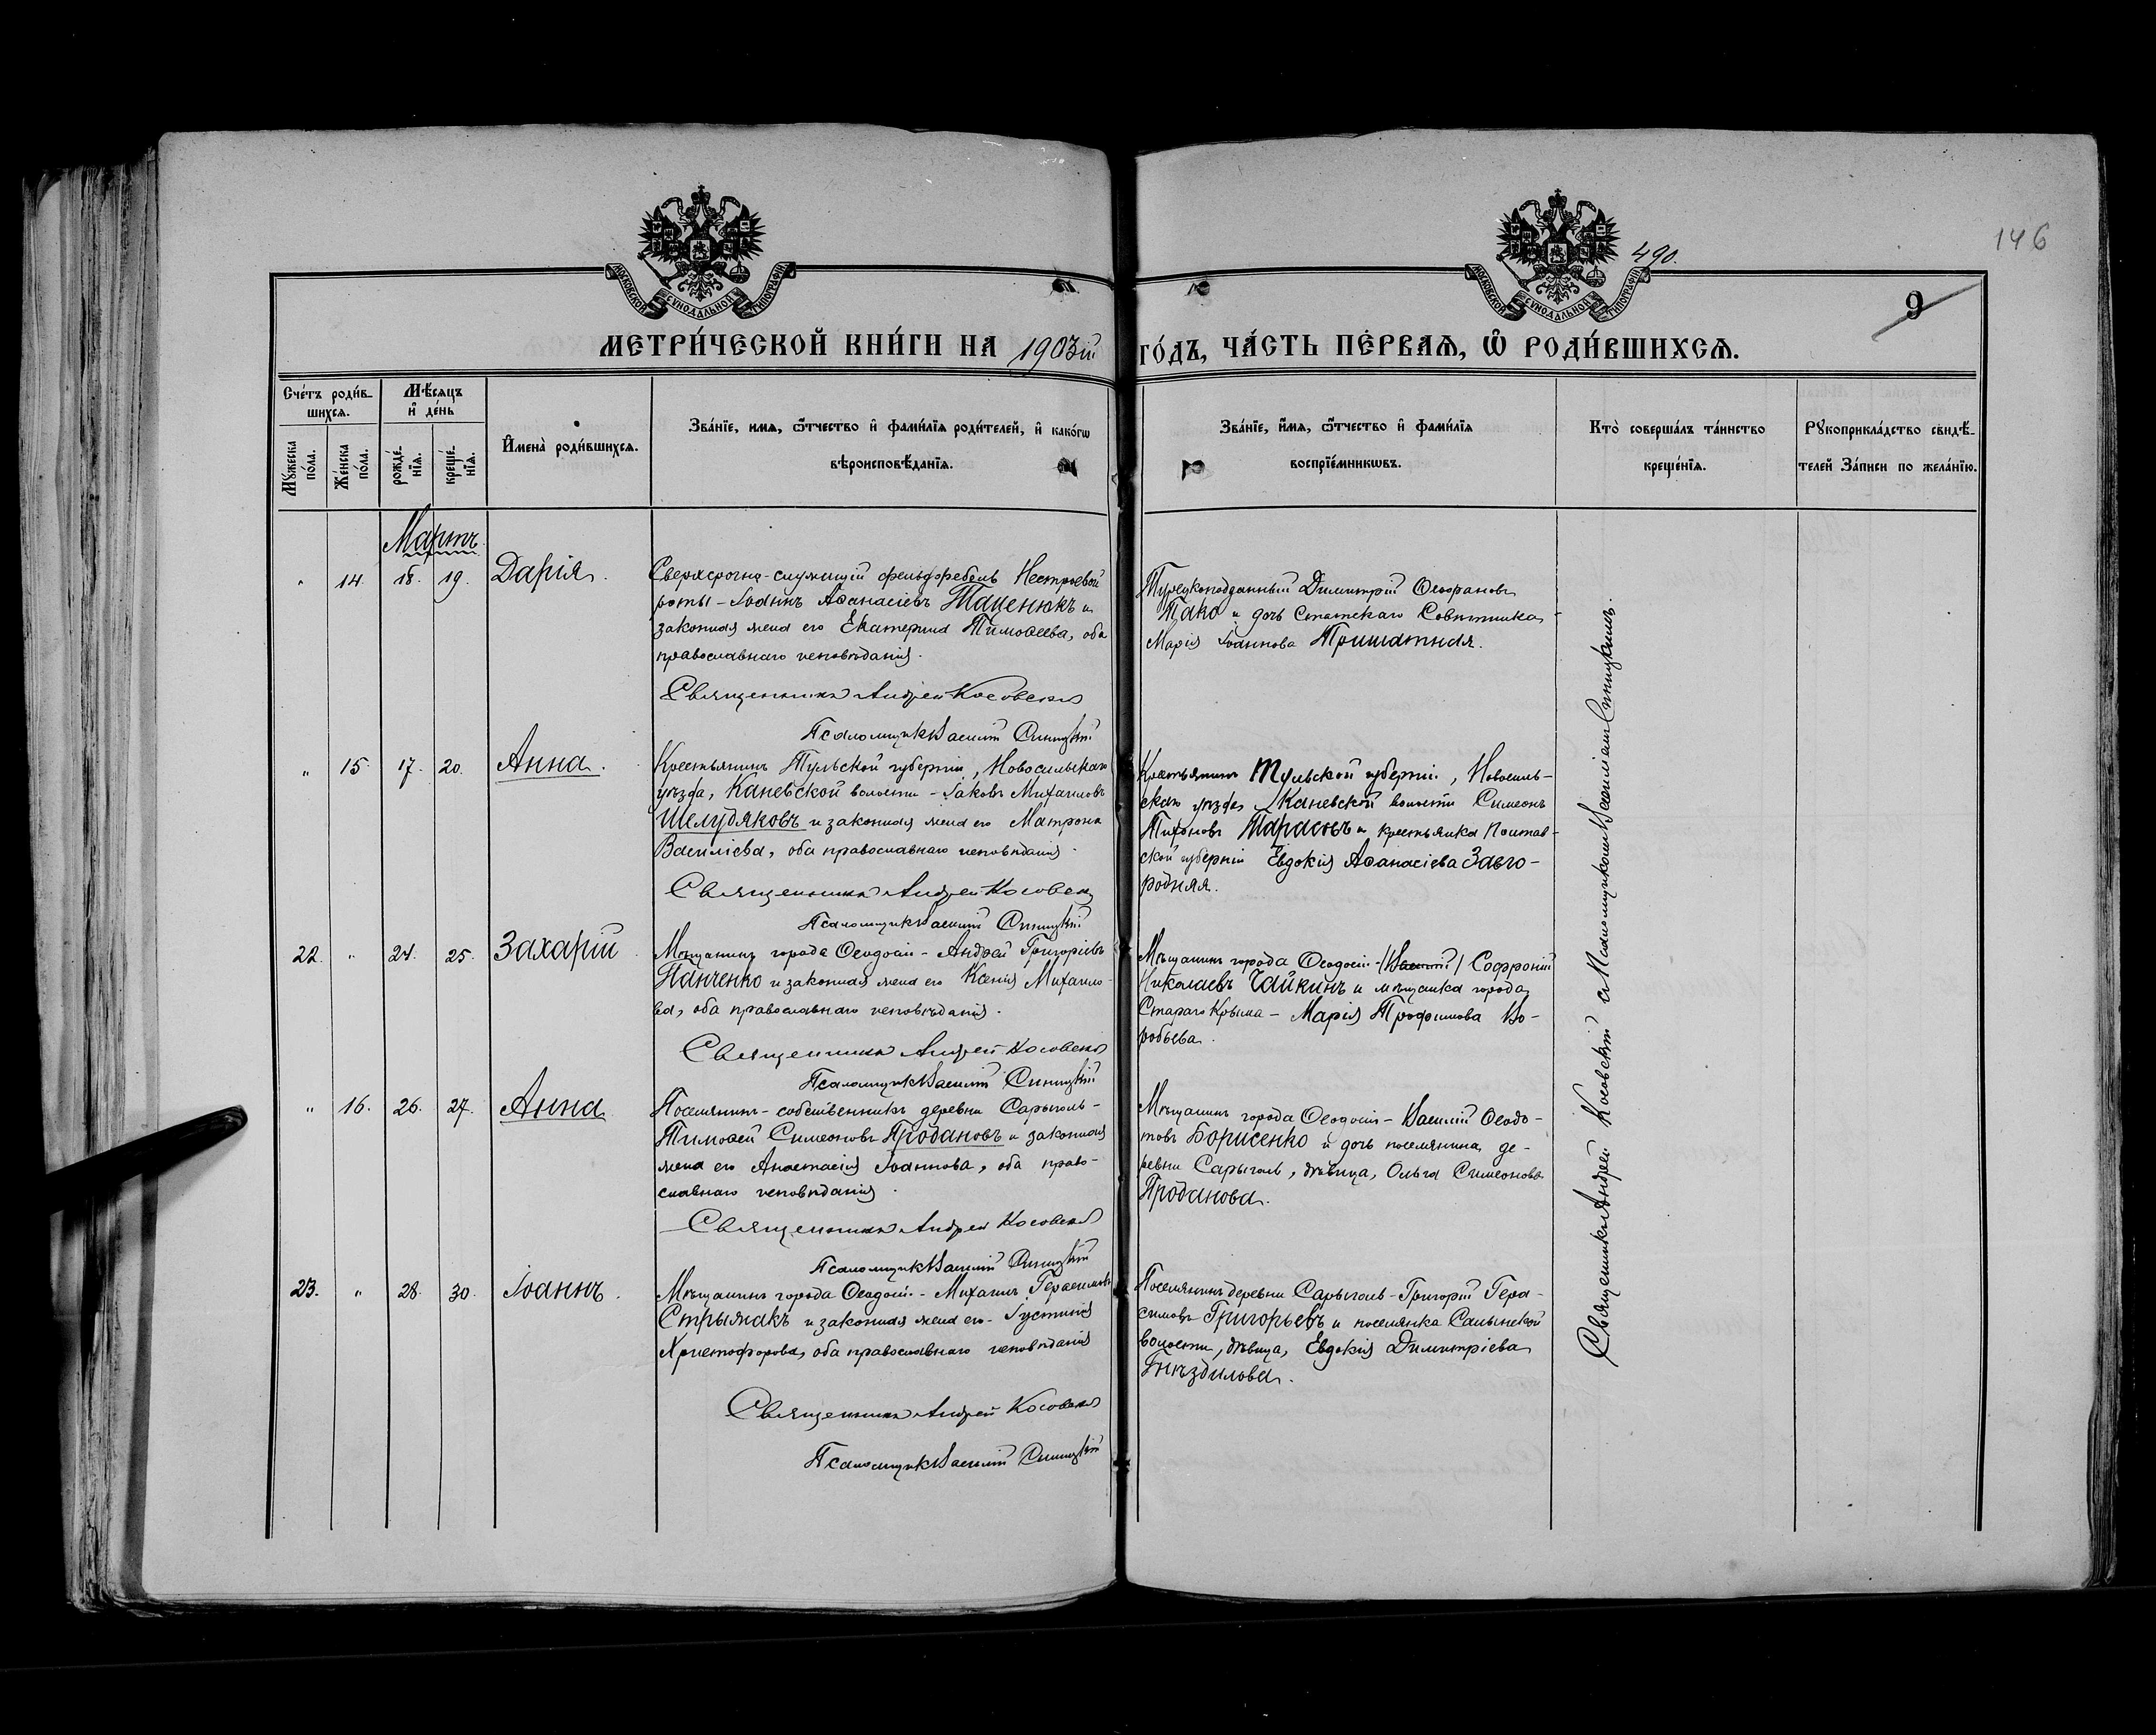 146
490.
9
МОСКОВСКОЙ СѴНОДАЛЬНОЙ ТИПОГРАФІИ
МОСКОВСКОЙ СѴНОДАЛЬНОЙ ТИПОГРАФІИ
МЕТРИ́ЧЕСКОЙ КНИ́ГИ НА 1903й ГО́ДЪ, ЧА́СТЬ ПЕ́РВАѦ, Ѡ РОДИ́ВШИХСѦ.
Сче́тъ роди́в-
шихсѧ.
Мѣ́сѧцъ
и҆ де́нь
Мꙋ́жеска
по́ла.
Же́нска
по́ла.
рожде́-
нїѧ.
креще́-
нїѧ.
И҆мена̀ роди́вшихсѧ.
Зва́нїе, имѧ, ѻ҆́тчество и҆ фами́лїѧ роди́телей, и҆ како́гѡ
вѣроисповѣ́данїѧ.
Зва́нїе, и҆́мѧ, ѻ҆́тчество и҆ фами́лїѧ
воспрїе́мникѡвъ.
Кто̀ соверша́лъ та́инство
креще́нїѧ.
Рꙋкоприкла́дство свидѣ́-
телей За́писи по жела́нїю.
Мартъ
" 14. 18. 19. Дарія.
Сверхсрочно-служащій фельдфебель Нестроевой
роты - Іоаннъ Аѳанасіевъ Таценюкъ и
законная жена его Екатерина Тимоѳеева, оба
православнаго исповѣданія.
Священникъ Андрей Косовскій
Псаломщикъ Василій Синицкій
Турецкоподданный Димитрій Ѳеофановъ
Цако и дочь Статскаго Совѣтника
Марія Іоаннова Тришатная.
" 15. 17. 20. Анна.
Крестьянинъ Тульской губерніи, Новосильскаго
уѣзда, Каневской волости - Іаковъ Михаиловъ
Шелудяковъ и законная жена его Матрона
Василіева, оба православнаго исповѣданія.
Священникъ Андрей Косовскій
Псаломщикъ Василій Синицкій
Крестьянинъ Тульской губерніи, Новосиль-
скаго уѣзда, Каневской волости Симеонъ
Тихоновъ Тарасовъ и крестьянка Полтав-
ской губерніи Евдокія Аѳанасіева Заго-
родняя.
22. " 24. 25. Захарій.
Мѣщанинъ города Ѳеодосіи - Андрей Григоріевъ
Панченко и законная жена его Ксенія Михаило-
ва, оба православнаго исповѣданія.
Священникъ Андрей Косовскій
Псаломщикъ Василій Синицкій
Мѣщанинъ города Ѳеодосіи - (Василій) Софроній
Николаевъ Чайкинъ и мѣщанка города
Стараго Крыма - Марія Трофимова Во-
робьева.
" 16. 26. 27. Анна
Поселянинъ-собственникъ деревни Сарыголь -
Тимоѳей Симеоновъ Продановъ и законная
жена его Анастасія Іоаннова, оба право-
славнаго исповѣданія.
Священникъ Андрей Косовскій
Псаломщикъ Василій Синицкій
Мѣщанинъ города Ѳеодосіи - Василій Ѳеодо-
товъ Борисенко и дочь поселянина де-
ревни Сарыголь, дѣвица, Ольга Симеонова
Проданова.
23. " 28. 30. Іоаннъ.
Мѣщанинъ города Ѳеодосіи - Михаилъ Герасимовъ
Стрыжакъ и законная жена его - Іустинія
Христофорова, оба православнаго исповѣданія
Священникъ Андрей Косовскій
Псаломщикъ Василій Синицкій
Поселянинъ деревни Сарыголь - Григорій Гера-
симовъ Григорьевъ и поселянка Салынской
волости, дѣвица, Евдокія Димитріева
Гнѣздилова.
Священникъ Андрей Косовскій съ Псаломщикомъ Василіемъ Синицкимъ.